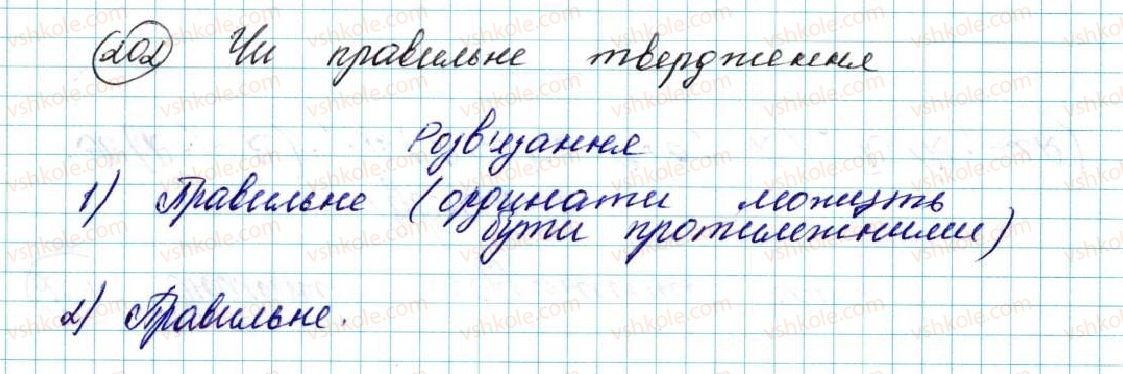 202 Чи правильне твердження
Розв'язання
1) Правильне (ординати можуть
бути протилежними)
2) Правильне.